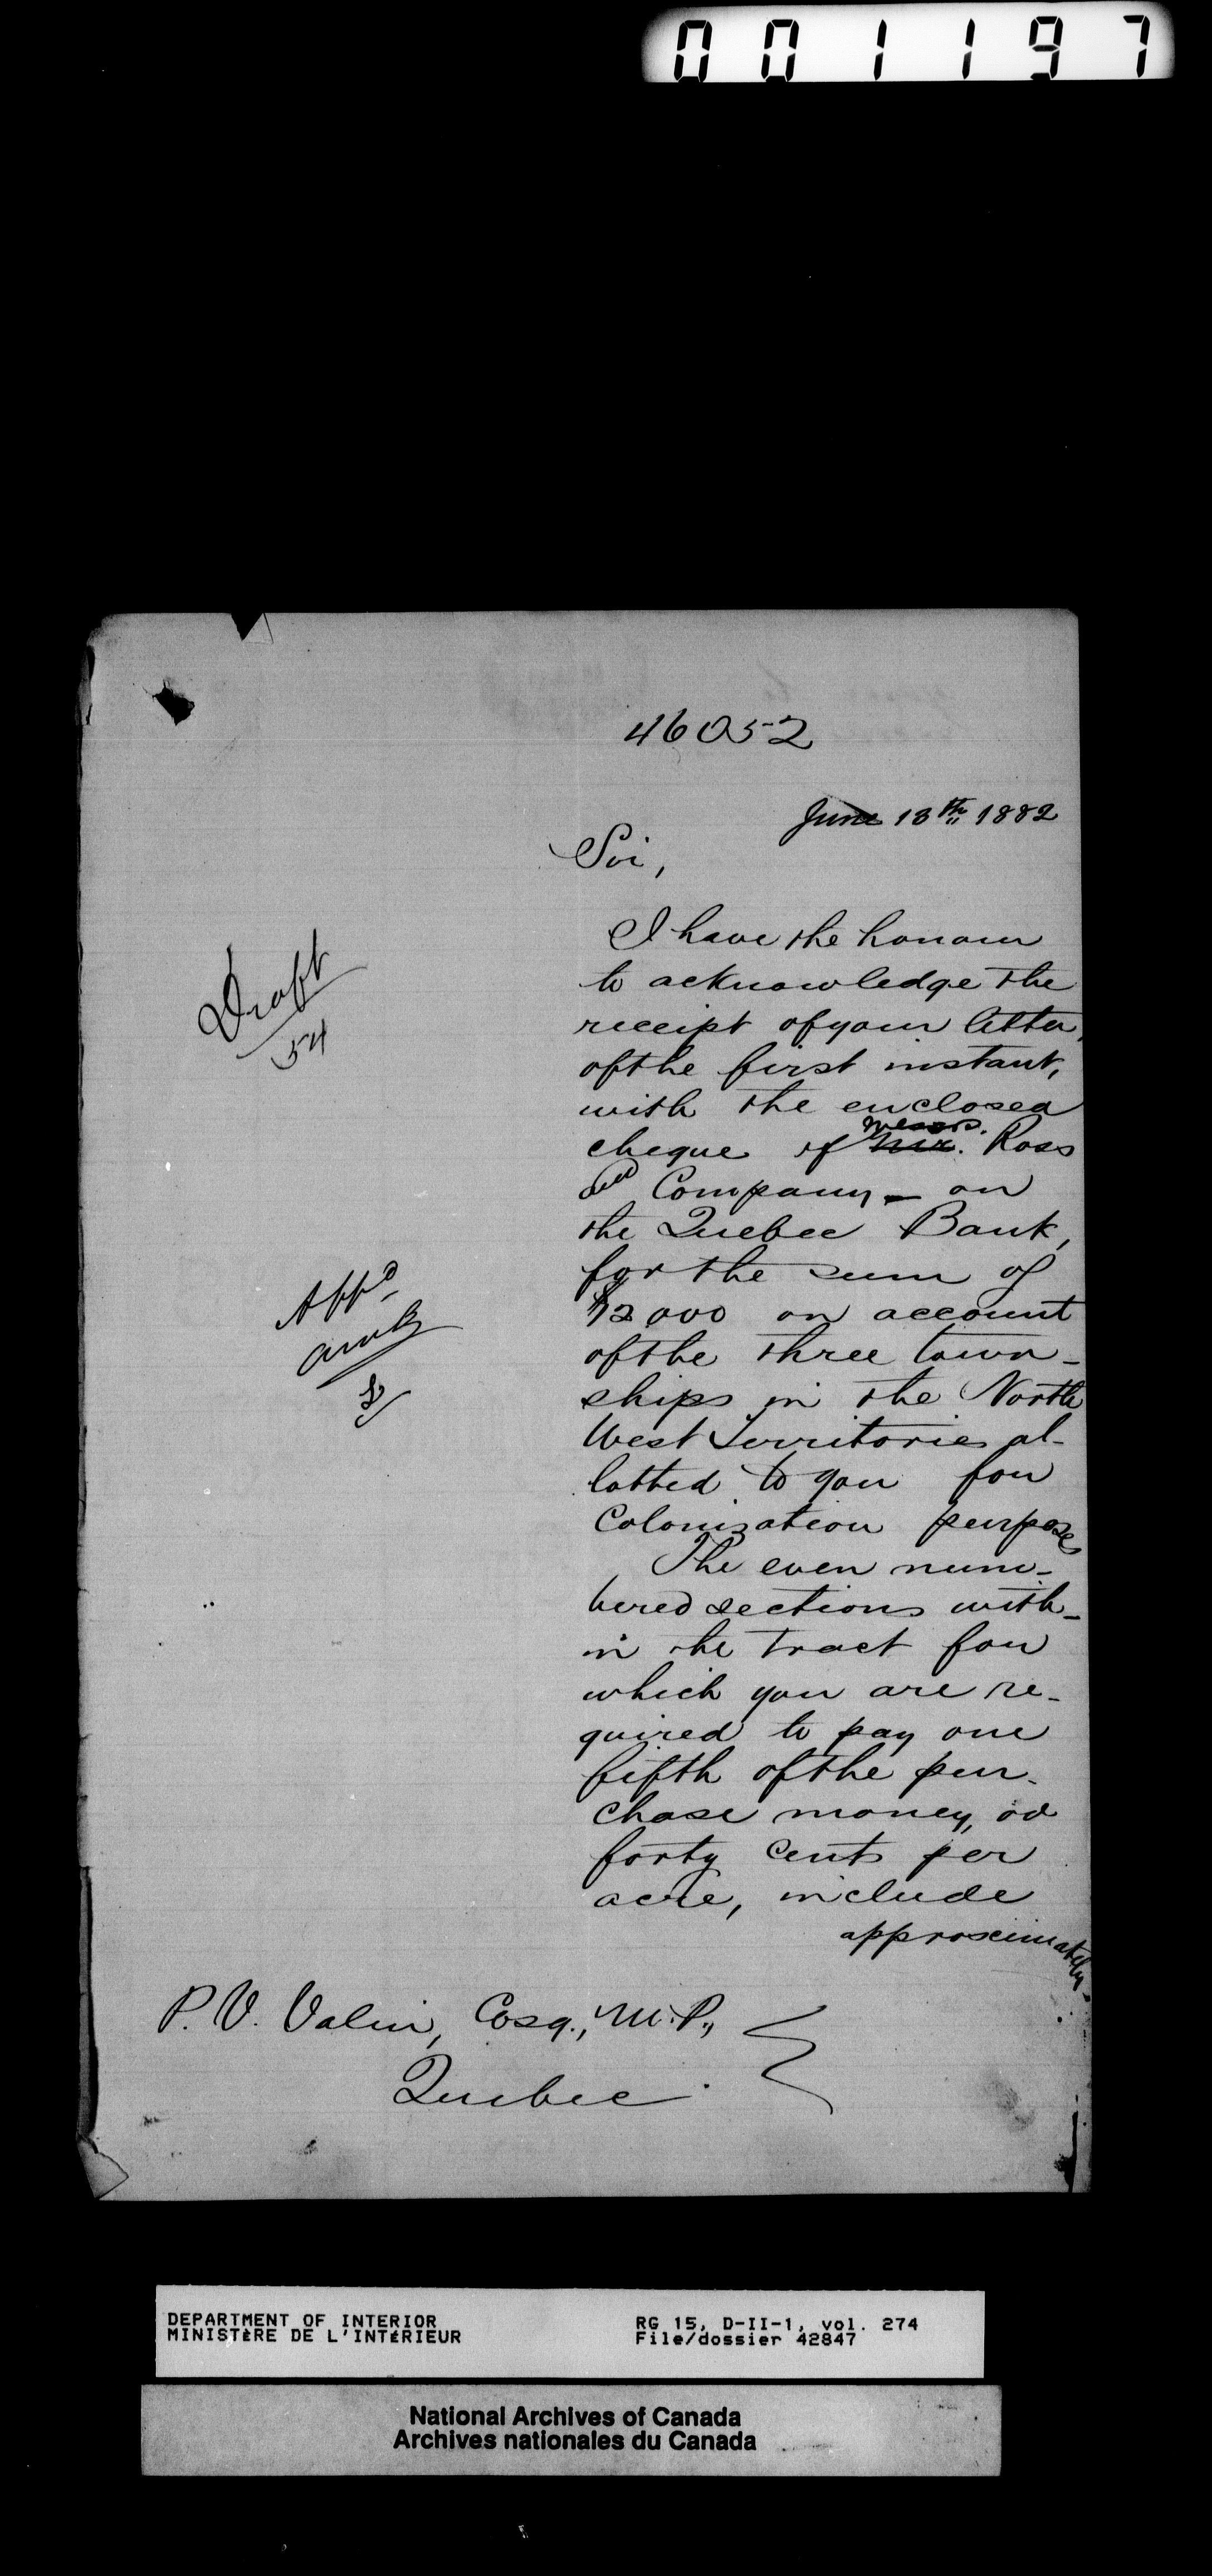 001197
46052
June 13th 1882
Sir,
Draft
54
I have the honour
to acknowledge the
receipt of your letter,
of the first instant,
with the enclosed
cheque of Mr. Messrs. Ross
and Company - on
the Quebec Bank,
for the sum of
$2000 on account
of the three town-
ships in the North
West Territories al-
lotted to you for
Colonization purposes
The even num-
bered sections with-
in the tract for
which you are re-
quired to pay one
fifth of the pur-
chase money, or
forty cents per
acre, include
approximately
Appd
P. V. Valin, Esq., M.P.,
Quebec.
DEPARTMENT OF INTERIOR
MINISTÈRE DE L'INTÉRIEUR
RG 15, D-II-1, vol. 274
File/dossier 42847
National Archives of Canada
Archives nationales du Canada